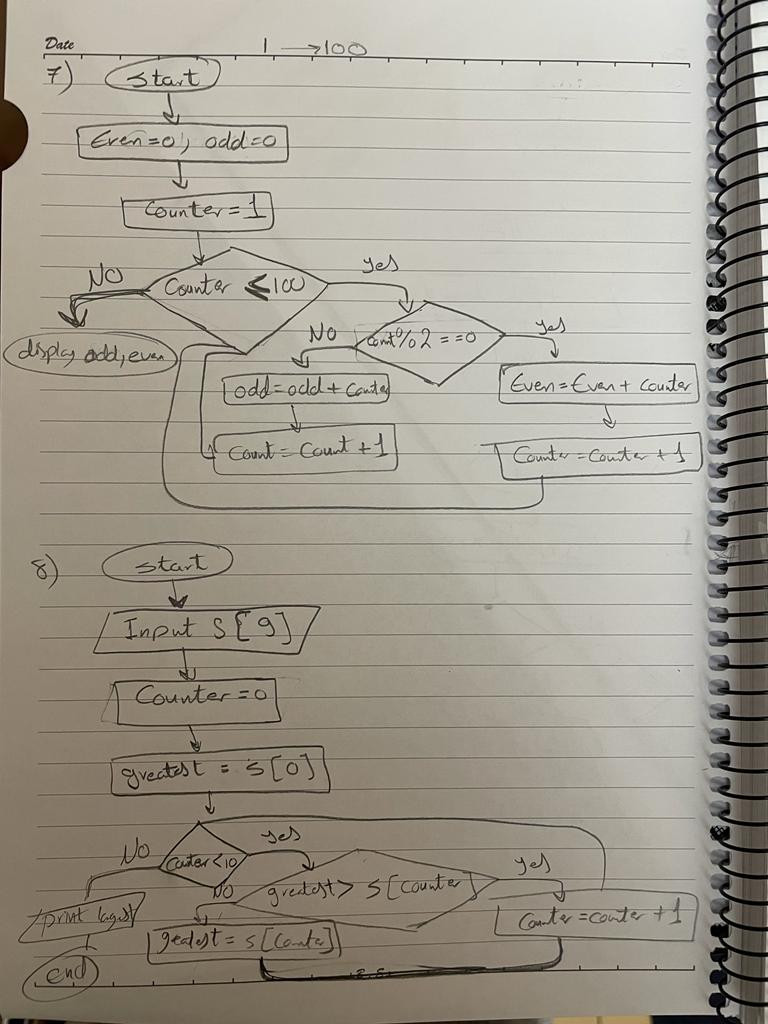 Date 1 → 100
7) start
Even=0, odd=0
Counter = 1
NO
Counter ≤ 100
yes
display odd, even
NO
Count % 2 == 0
yes
odd = odd + Counter
Even = Even + Counter
Count = Count + 1
Counter = Counter + 1
8) start
Input S [9]
Counter = 0
greatest = s [0]
NO
Counter < 10
yes
NO
greatest > s [Counter]
yes
print
greatest = s [Counter]
Counter = counter + 1
end